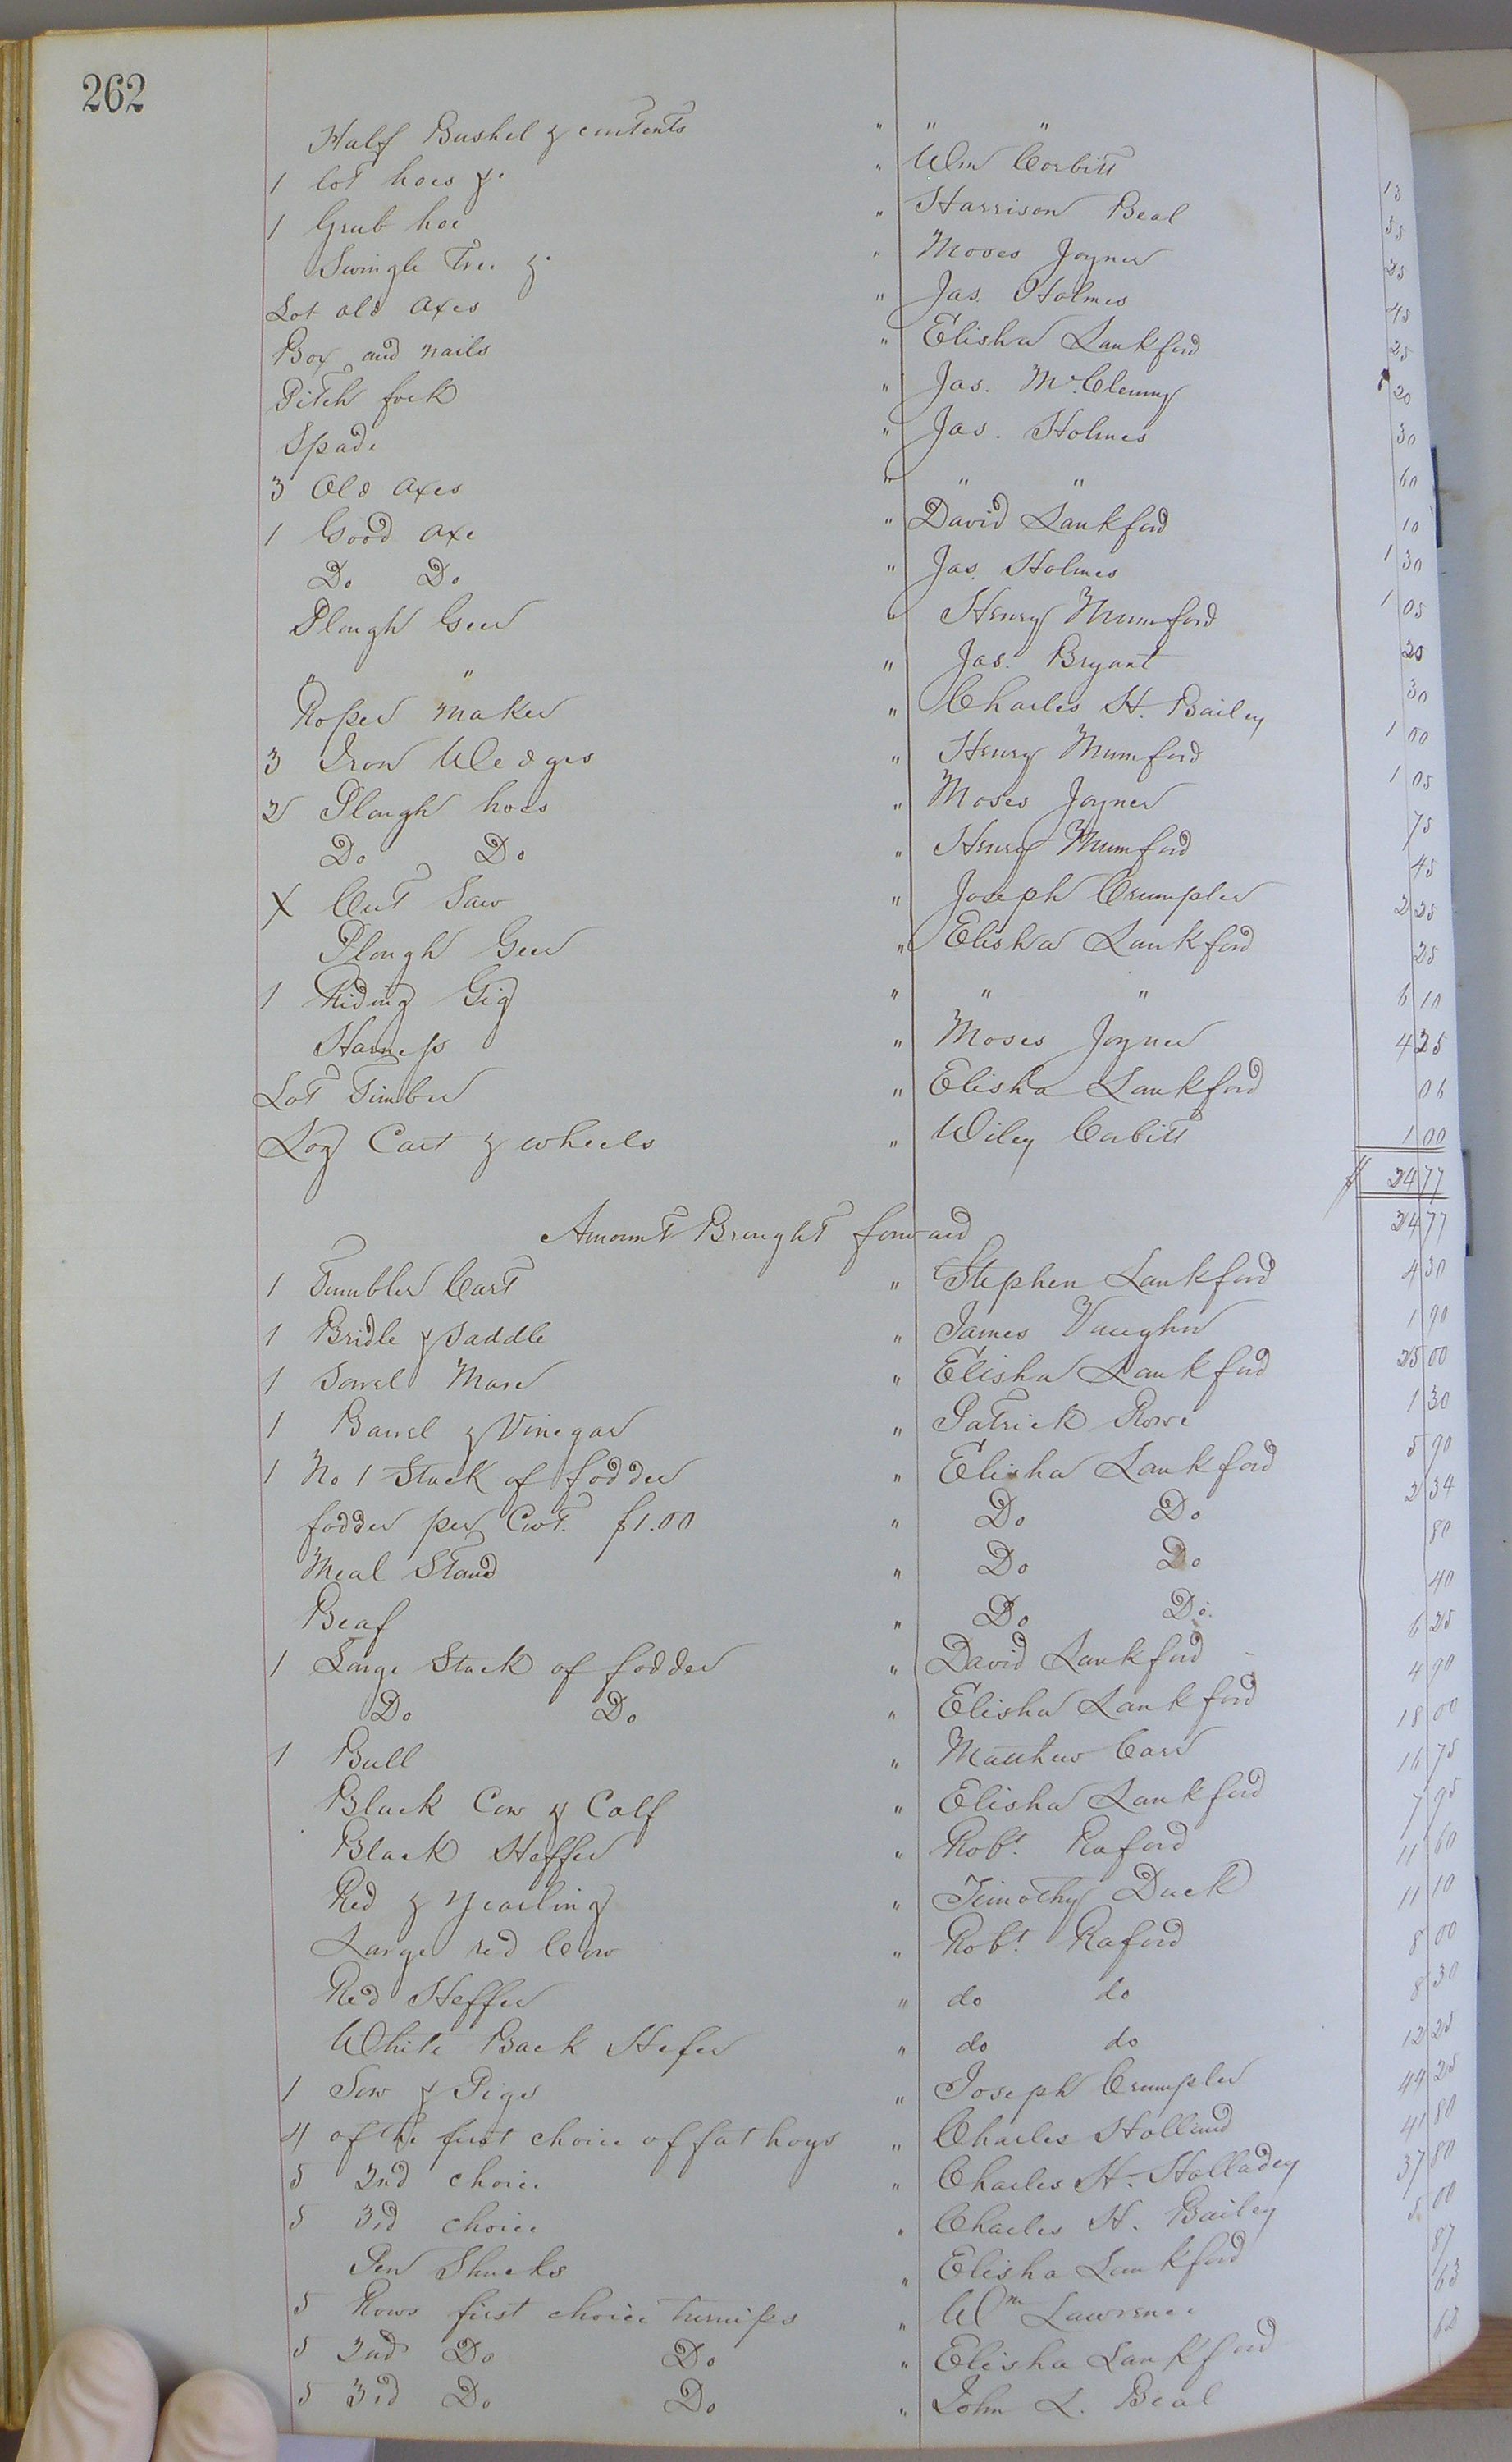 262
Half Bushel & contents " " " 13
1 lot hoes &. " Wm Corbitt 55
1 Grub hoe " Harrison Beal 25
Swingle Tree &. " Moses Joyner 45
Lot old axes " Jas. Holmes 25
Box and nails " Elisha Lankford 20
Pitch fork " Jas. McClenny 30
Spade " Jas. Holmes 60
3 Old axes " " " 10
1 Good axe " David Lankford 1 30
Do Do " Jas. Holmes 1 05
Plough Geer " Henry Mumford 20
" " " Jas. Bryant 30
Roper maker " Charles H. Bailey 1 00
3 Iron Wledges " Henry Mumford 1 05
2 Plough hoes " Moses Joyner 75
Do Do " Henry Mumford 45
X Cut Saw " Joseph Crumpler 2 25
Plough Geer " Elisha Lankford 25
1 Riding Gig " " " 6 10
Harness " Moses Joyner 4 25
Lot Timber " Elisha Lankford 06
Log Cart & wheels " Wiley Corbitt 1 00
$ 24 77
Amount Brought forward 24 77
1 Tumbler Cart " Stephen Lankford 4 30
1 Bridle & Saddle " James Vaughn 1 90
1 Sorrel Mare " Elisha Lankford 25 00
1 Barrel & Vinegar " Patrick Rowe 1 30
1 No 1 Stack of fodder " Elisha Lankford 5 90
fodder per Cwt. $1.00 " Do Do 2 34
Meal Stand " Do Do 80
Beaf " Do Do. 40
1 Large Stack of fodder " David Lankford 6 25
Do Do " Elisha Lankford 4 90
1 Bull " Matthew Carr 18 00
Black Cow & Calf " Elisha Lankford 16 75
Black Heffer " Robt. Raford 7 95
Red & Yearling " Timothy Duck 11 60
Large red Cow " Robt. Raford 11 10
Red Heffer " do do 8 00
White Back Hefer " do do 8 30
1 Sow & Pigs " Joseph Crumpler 12 25
4 of the first choice of fat hogs " Charles Holland 44 25
5 2nd choice " Charles H. Holladay 41 80
5 3rd choice " Charles H. Bailey 37 80
Pen Shucks " Elisha Lankford 5 00
5 Rows first choice turnips " Wm Lawrence 87
5 2nd Do Do " Elisha Lankford 63
5 3rd Do Do " John L. Beal 62